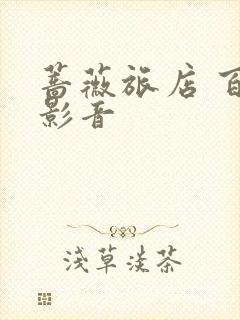 蔷薇旅店 百
影音
浅草淡茶